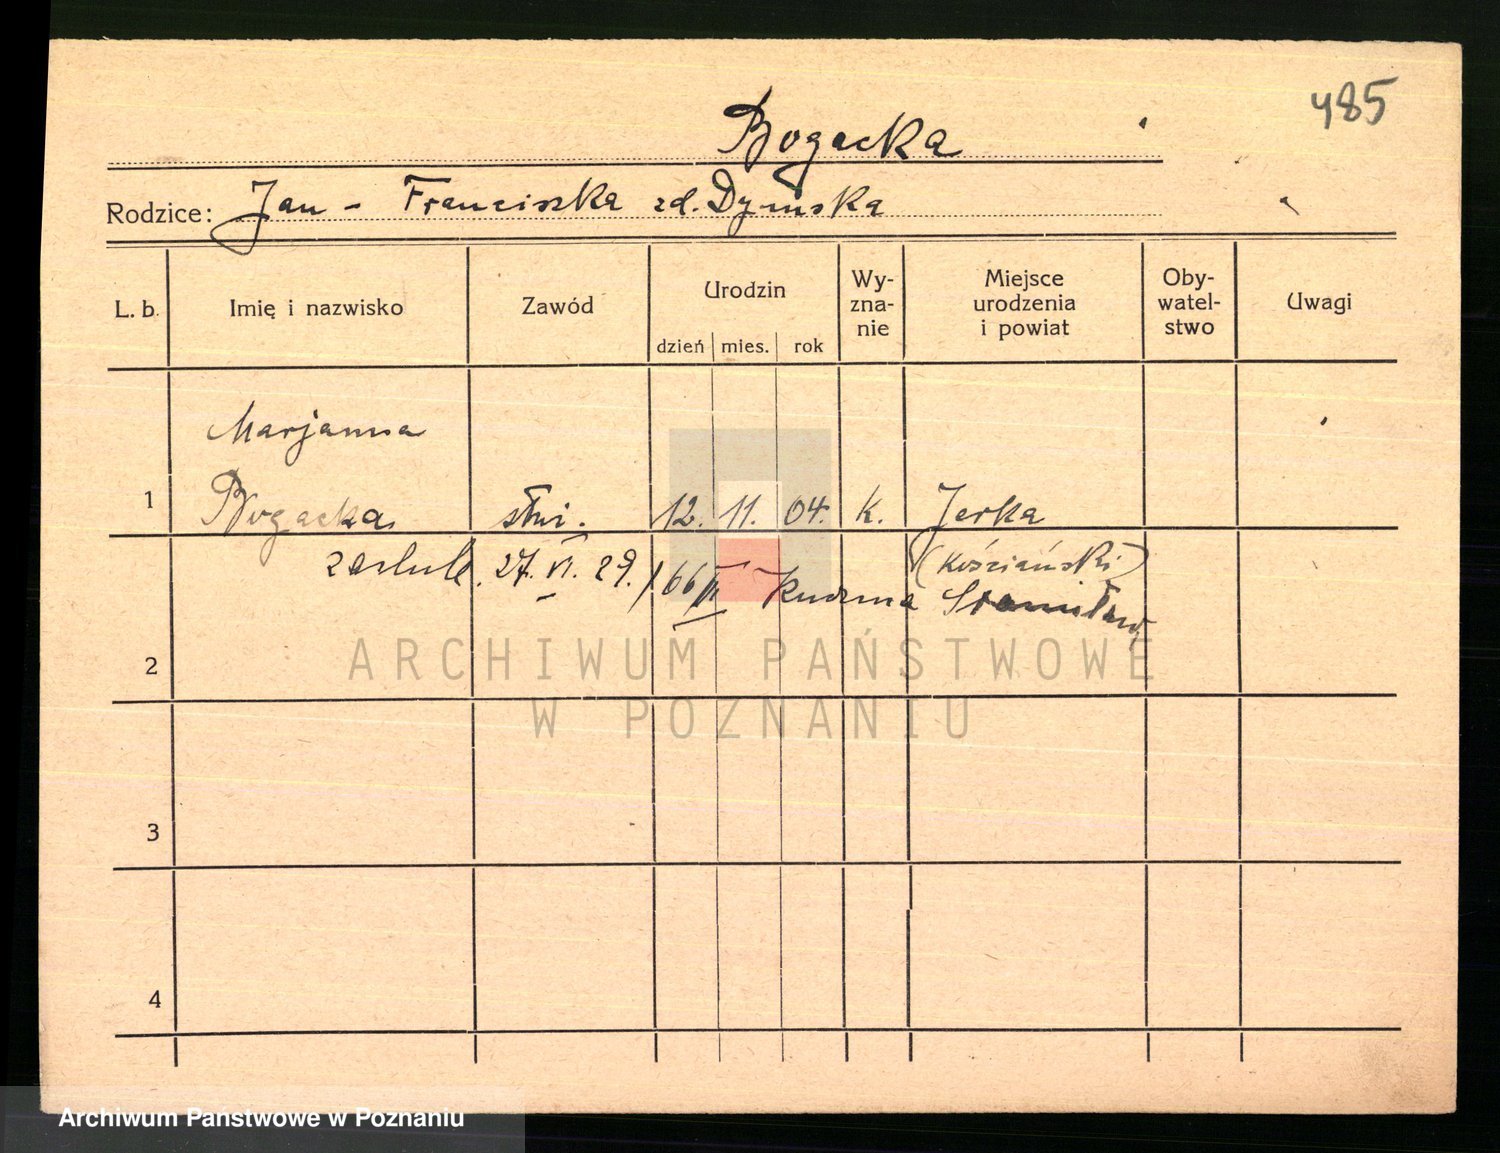 485
Bogacka
Rodzice: Jan - Franciszka zd. Dymska
L. b. Imię i nazwisko Zawód Urodzin dzień mies. rok Wy-zna-nie Miejsce urodzenia i powiat Oby-watel-stwo Uwagi
Marjanna
1 Bogacka służ. 12. 11. 04. k. Jerka
(kościański)
27. VI. 29. Stanisław
2
ARCHIWUM PAŃSTWOWE
W POZNANIU
3
4
Archiwum Państwowe w Poznaniu